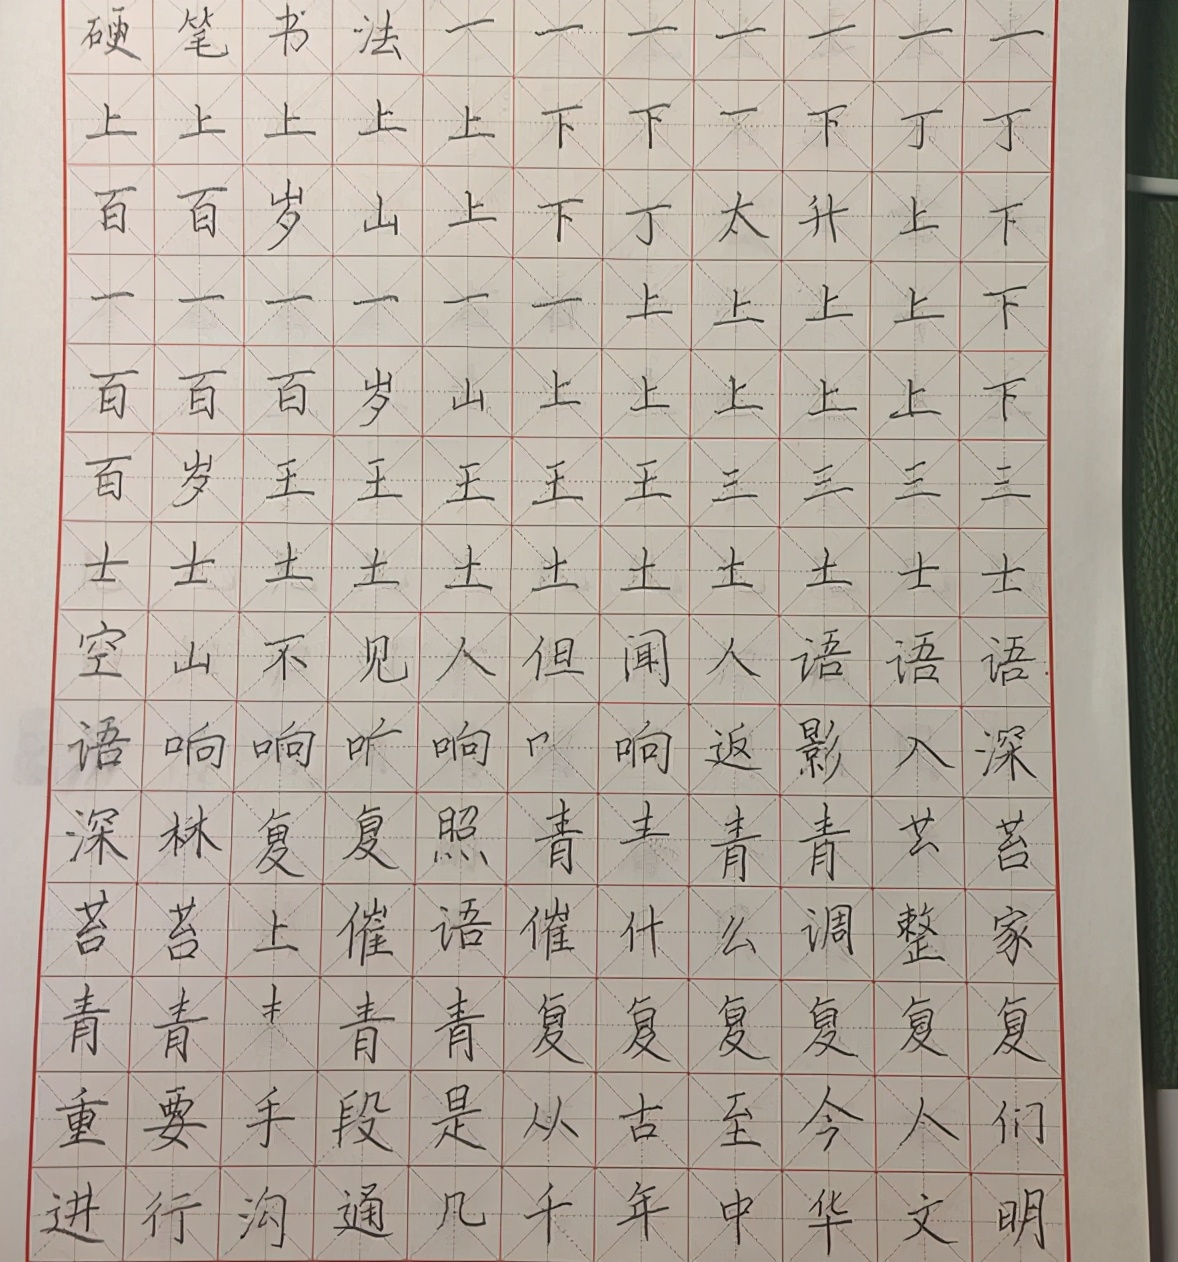 硬笔书法一一一一一一一
上上上上上下下丅下丁丁
百百岁山上下丁太升上下
一一一一一一上上上上下
百百百岁山上上上上上下
百岁王王王王王三三三三
士士土土土土土土土士士
空山不见人但闻人语语语
语响响听响响返影入深
深林复复照青龶青青苔
苔苔上催语催什么调整家
青青青青复复复复复复
重要手段是从古至今人们
进行沟通几千年中华文明